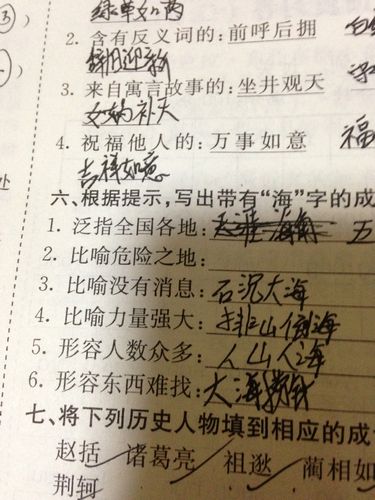 绿草如茵
2. 含有反义词的:前呼后拥
辞旧迎新
3. 来自寓言故事的:坐井观天
女娲补天
4. 祝福他人的:万事如意 福
吉祥如意
六、根据提示,写出带有“海”字的成
1. 泛指全国各地:天涯海角 五
2. 比喻危险之地:
3. 比喻没有消息:石沉大海
4. 比喻力量强大:排山倒海
5. 形容人数众多:人山人海
6. 形容东西难找:大海捞针
七、将下列历史人物填到相应的成
赵括 诸葛亮 祖逖 蔺相如
荆轲